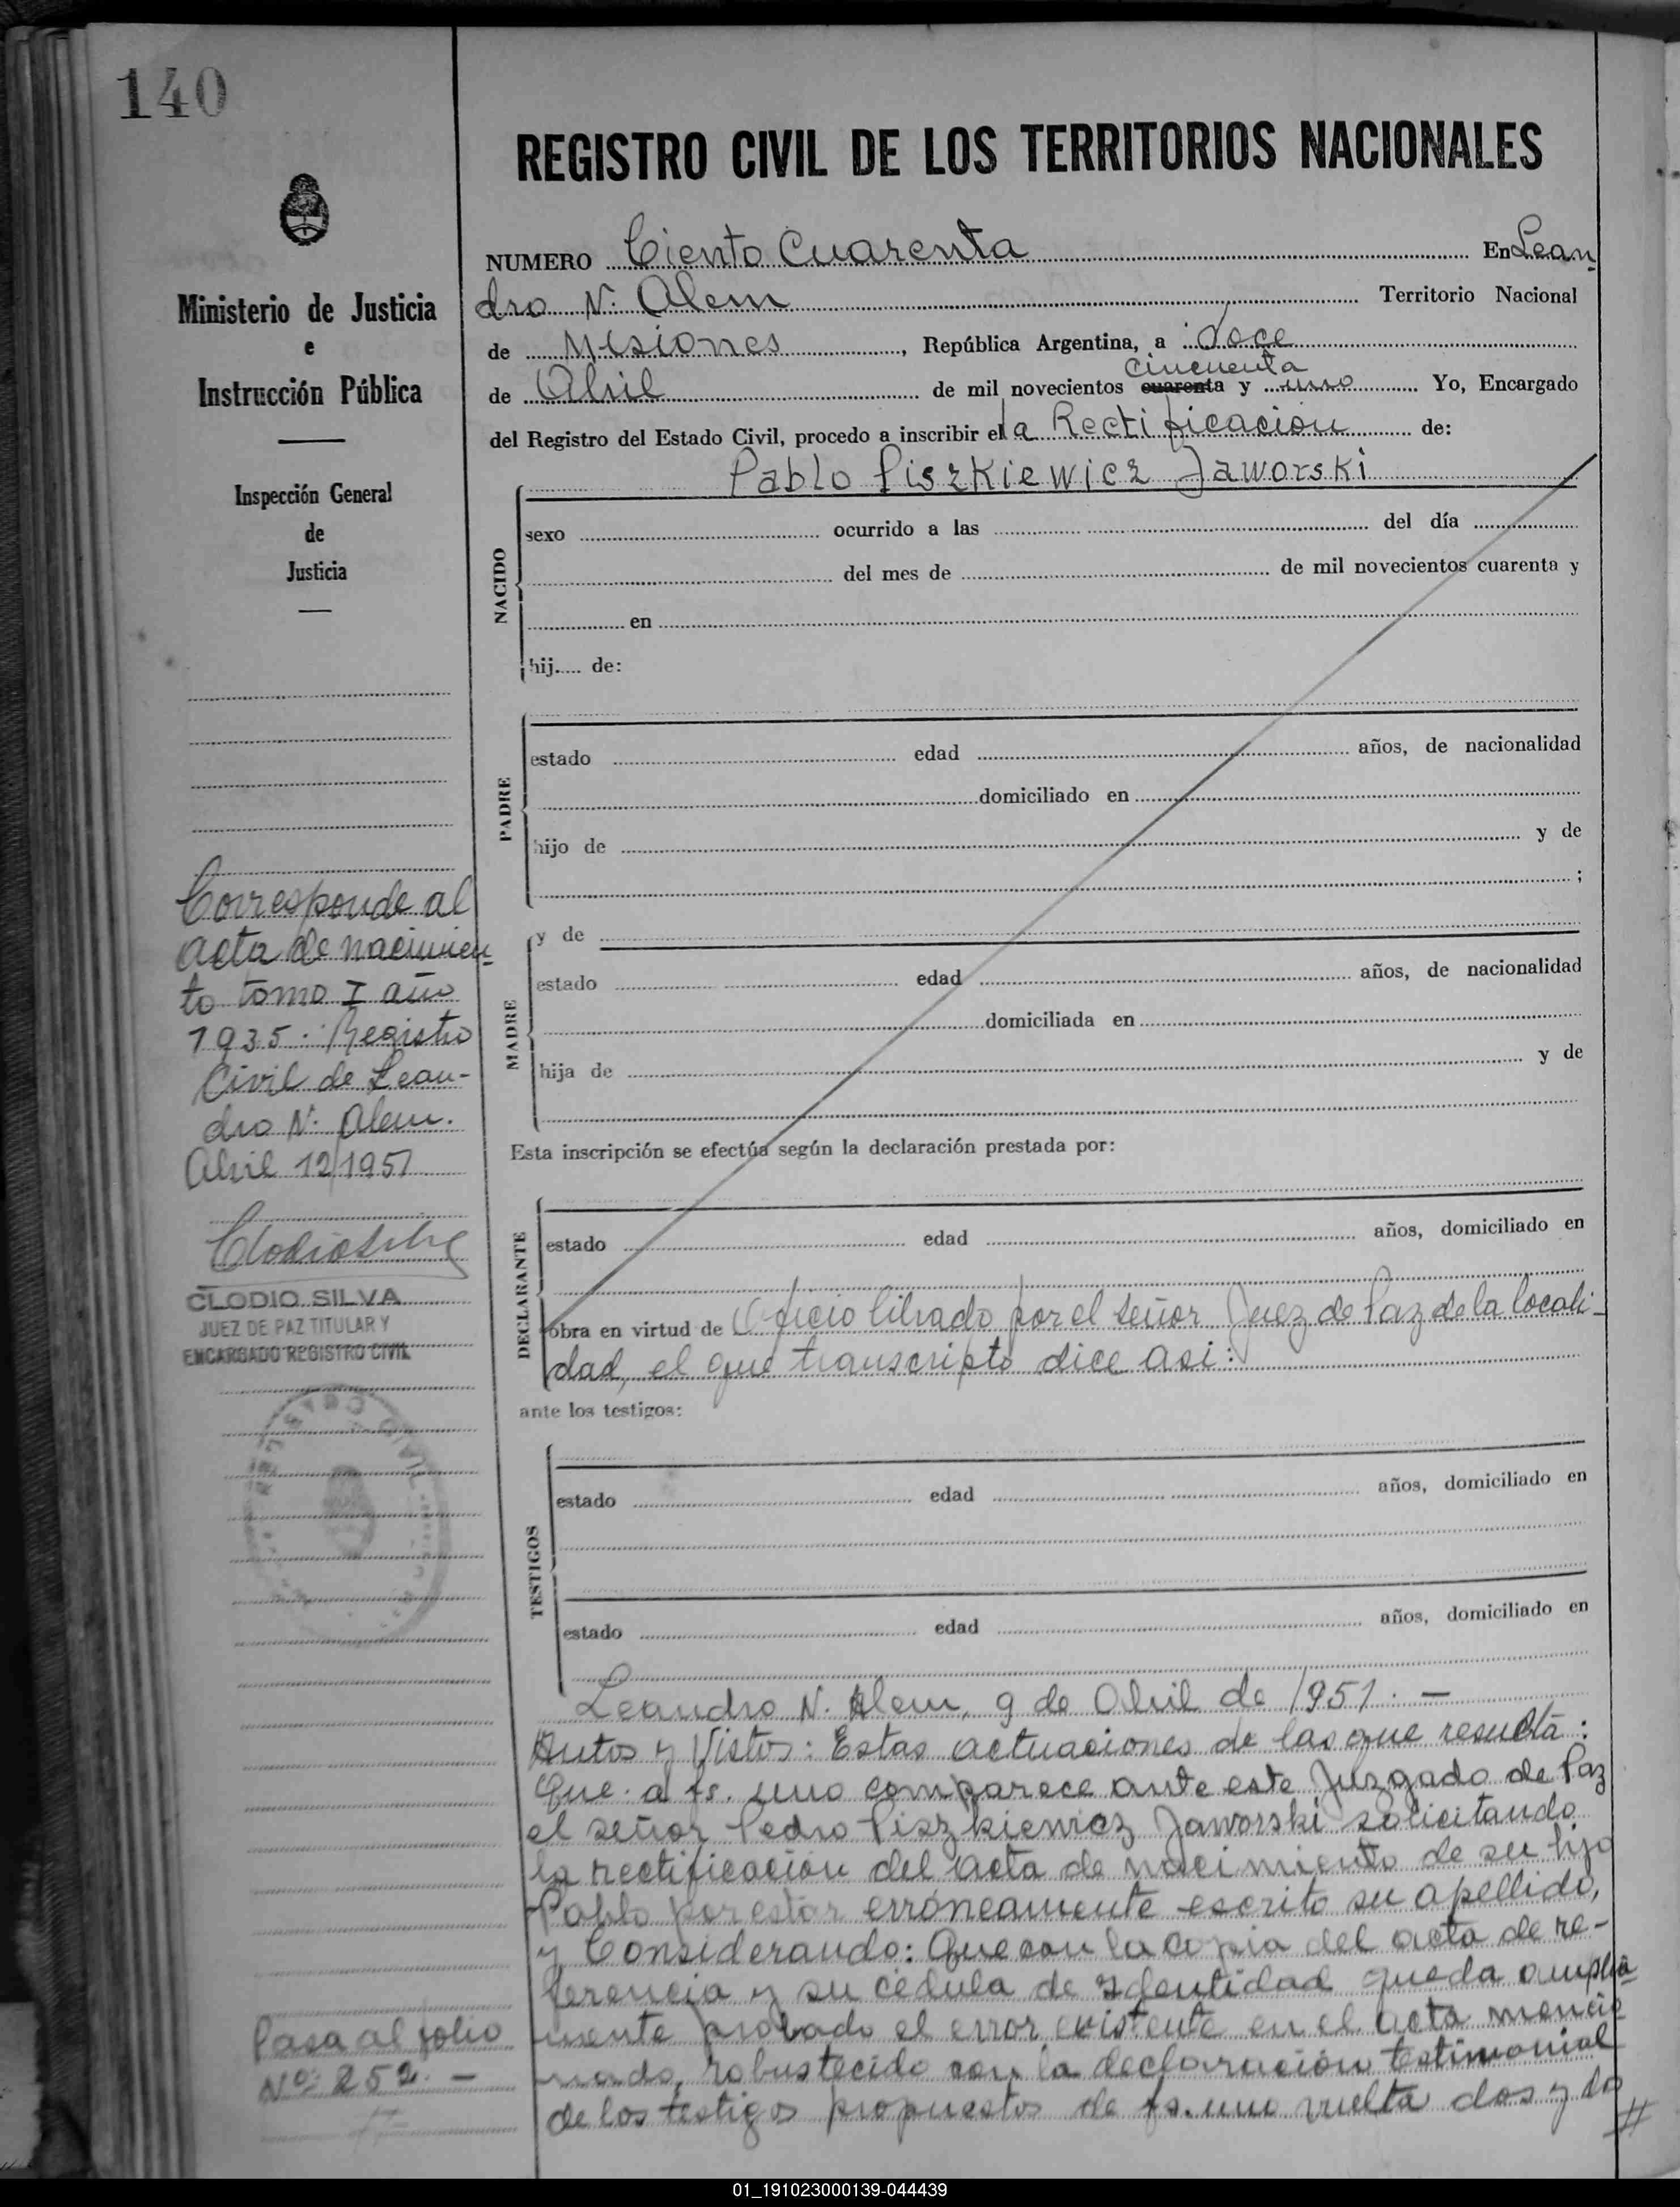 140
REGISTRO CIVIL DE LOS TERRITORIOS NACIONALES
Ministerio de Justicia
e
Instrucción Pública
Inspección General
de
Justicia
NUMERO Ciento Cuarenta En Lean-
dro N. Alem Territorio Nacional
de Misiones, República Argentina, a doce
cincuenta
de Abril de mil novecientos cuarenta y uno Yo, Encargado
del Registro del Estado Civil, procedo a inscribir el la Rectificación de:
Pablo Piszkiewicz Jaworski
NACIDO
sexo ocurrido a las del día
del mes de de mil novecientos cuarenta y
en
hij de:
PADRE
estado edad años, de nacionalidad
domiciliado en
hijo de y de
;
MADRE
y de
estado edad años, de nacionalidad
domiciliada en
hija de y de
Esta inscripción se efectúa según la declaración prestada por:
DECLARANTE
estado edad años, domiciliado en
obra en virtud de Oficio librado por el señor Juez de Paz de la locali-
dad, el que transcripto dice asi:
ante los testigos:
TESTIGOS
estado edad años, domiciliado en
estado edad años, domiciliado en
Leandro N. Alem, 9 de Abril de 1951. -
Autos y Vistos: Estas actuaciones de las que resulta:
Que a fs. uno comparece ante este Juzgado de Paz
el señor Pedro Piszkiewicz Jaworski solicitando
la rectificación del acta de nacimiento de su hijo
Pablo por estar erróneamente escrito su apellido,
y Considerando: Que con la copia del acta de re-
ferencia y su cédula de identidad queda amplia-
mente probado el error existente en el acta mencio-
nada, robustecido con la declaración testimonial
de los testigos propuestos de fs. uno vuelta dos y dos
#
Corresponde al
acta de nacimien-
to tomo I año
1935. Registro
Civil de Lean-
dro N. Alem.
Abril 12/1951
Clodio Silva
CLODIO SILVA
JUEZ DE PAZ TITULAR Y
ENCARGADO REGISTRO CIVIL
Pasa al folio
Nº 252. -
01_191023000139-044439